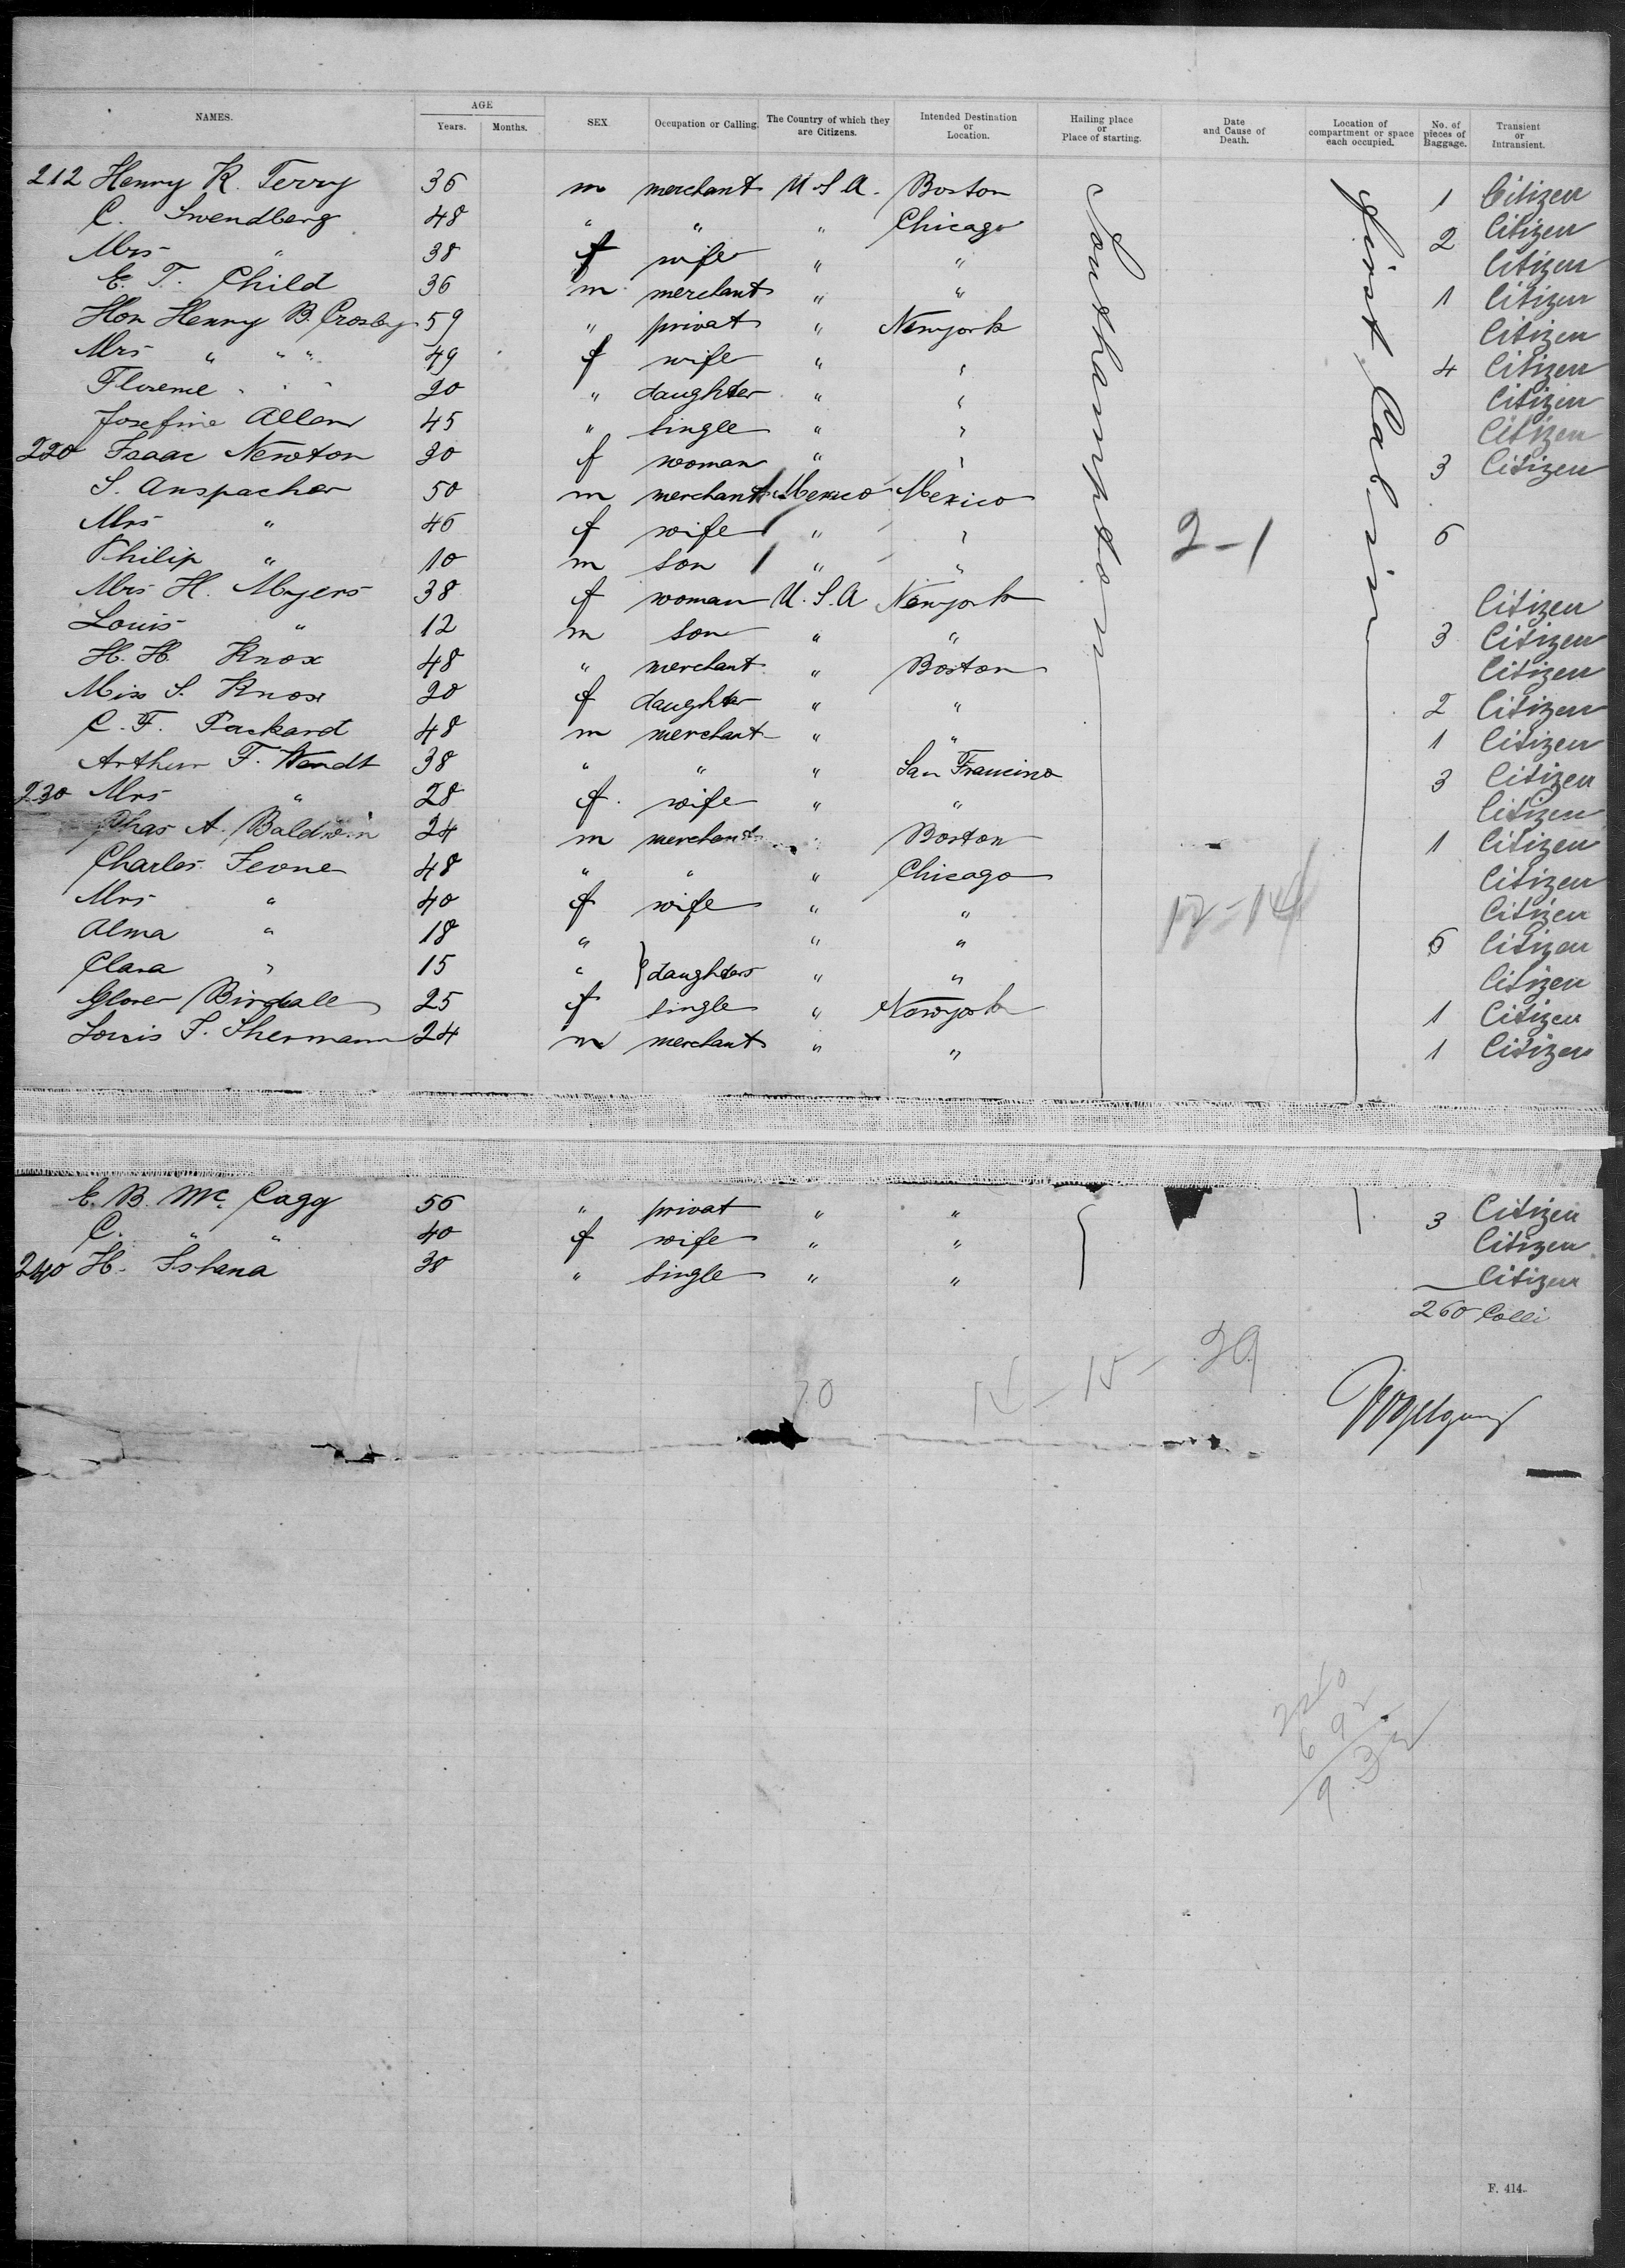 NAMES. AGE Years. Months. SEX Occupation or Calling. The Country of which they are Citizens. Intended Destination or Location. Hailing place or Place of starting. Date and Cause of Death. Location of compartment or space each occupied. No. of pieces of Baggage. Transient or Intransient.
212 Henry K. Terry 36 m merchant U.S.A. Boston Southampton First Cabin 1 Citizen
C. Swendberg 48 " " " Chicago 2 Citizen
Mrs " 38 f wife " " Citizen
E. T. Child 36 m merchant " " 1 Citizen
Hon Henry B. Crosby 59 " privat " Newyork Citizen
Mrs " " " 49 f wife " " 4 Citizen
Florence " " " 20 " daughter " " Citizen
Josefine Allen 45 " single " " Citizen
220 Isaac Newton 30 f woman " " 3 Citizen
S. Anspacher 50 m merchant Mexico Mexico
Mrs " 46 f wife " " 2-1 6
Philip " 10 m son " "
Mrs H. Myers 38 f woman U.S.A Newyork Citizen
Louis " 12 m son " " 3 Citizen
H. H. Knox 48 " merchant " Boston Citizen
Miss S. Knox 20 f daughter " " 2 Citizen
C. F. Packard 48 m merchant " " 1 Citizen
Arthur F. Wendt 38 " " " San Francisco 3 Citizen
230 Mrs " 28 f wife " " Citizen
Chas A. Baldwin 24 m merchant " Boston 1 Citizen
Charles Leone 48 " " " Chicago Citizen
Mrs " 40 f wife " " 12-14 Citizen
Alma " 18 " " " 6 Citizen
Clara " 15 " } daughters " " Citizen
Glover Birdsall 25 f single " Newyork 1 Citizen
Louis S. Shermann 24 m merchant " " 1 Citizen
E. B. Mc. Cagg 56 " privat " " 3 Citizen
C. " " 40 f wife " " Citizen
240 H. Islana 38 " single " " Citizen
260 Colli
15 - 29
F. 414.